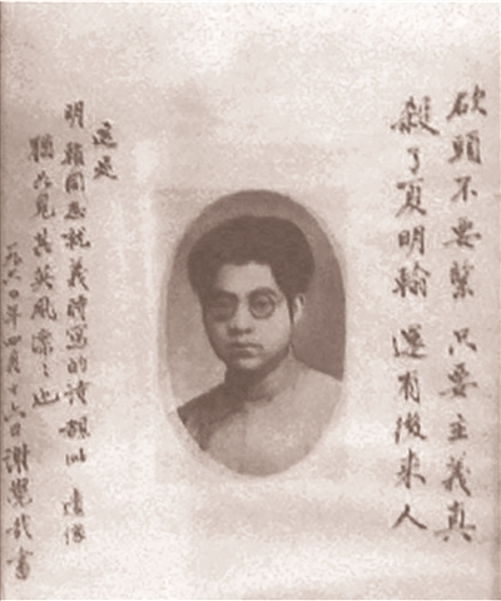 砍頭不要緊 只要主義真
殺了夏明翰 還有後來人
這是
明翰同志就義時寫的詩 題以 遺像
猶如見其英風凛之也
一九六〇年四月十六日謝覺哉書